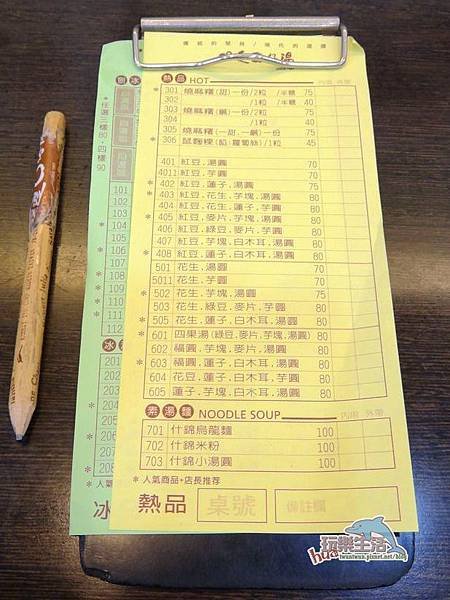 熱品 HOT 內用 外帶
*301 燒麻糬(甜)一份/2粒 /半糖 75
/1粒 /半糖 40
303 燒麻糬(鹹)一份/2粒 75
304 /1粒 40
305 燒麻糬(一甜.一鹹)一份 75
*306 鼠麴粿(餡/蘿蔔絲)/1粒 45
401 紅豆.湯圓 70
4011 紅豆.芋圓 70
*403 紅豆.花生.芋塊.湯圓 80
404 紅豆.花生.蓮子.芋圓 80
*405 紅豆.麥片.芋塊.湯圓 80
406 紅豆.綠豆.麥片.湯圓 80
407 紅豆.芋塊.白木耳.湯圓 80
*408 紅豆.蓮子.白木耳.湯圓 80
501 花生.湯圓 70
5011 花生.芋圓 70
*502 花生.芋塊.湯圓 75
503 花生.綠豆.麥片.芋圓 80
*505 花生.蓮子.白木耳.湯圓 80
*601 四果湯(綠豆.麥片.芋塊.湯圓) 80
602 福圓.芋塊.麥片.湯圓 80
604 花豆.蓮子.麥片.芋圓 80
605 蓮子.芋塊.白木耳.湯圓 80
素湯麵 NOODLE SOUP 內用 外帶
701 什錦烏龍麵 100
702 什錦米粉 100
703 什錦小湯圓 100
*人氣商品+店長推荐
熱品 桌號 備註欄
*任選三樣80.四樣90
101
*104
*107
108
109
110
111
112
冰
201
202
203
*204
205
206
207
208
*人氣
冰
玩樂生活